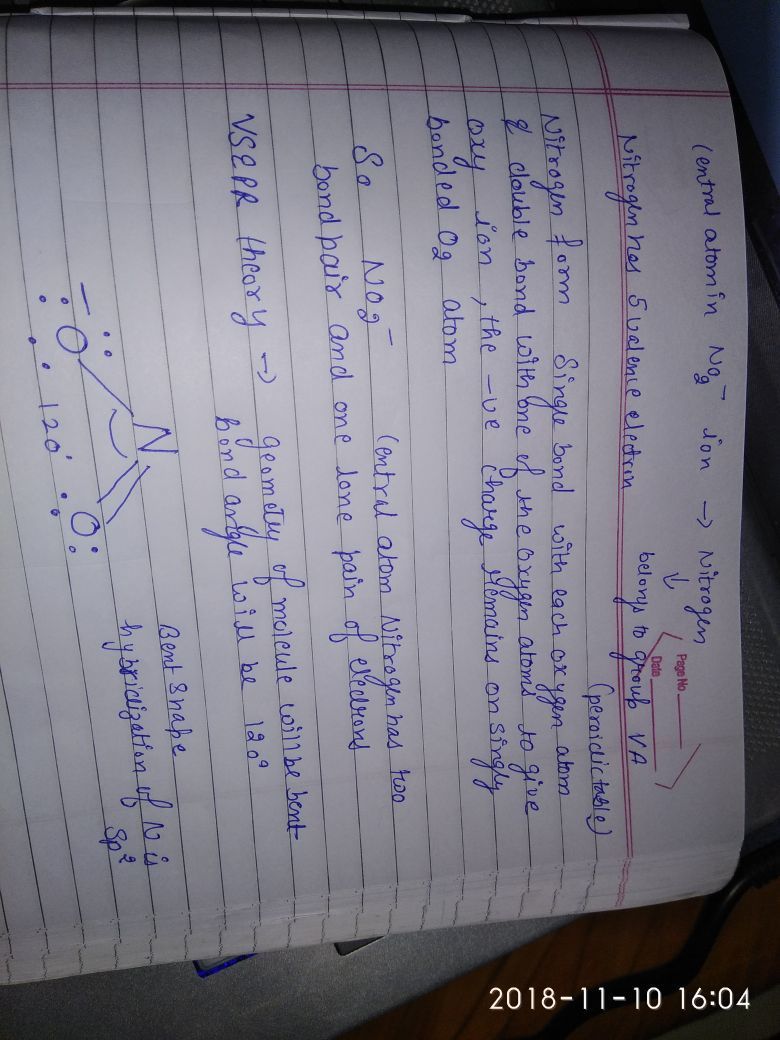 Page No
Date
Central atom in NO2⁻ ion → Nitrogen
↓
belongs to group VA
(peroidic table)
Nitrogen has 5 valence electron
Nitrogen form single bond with each oxygen atom
& double bond with one of the oxygen atoms to give
oxy ion, the -ve charge remains on singly
bonded O2 atom
So NO2⁻ Central atom Nitrogen has two
bond pair and one lone pair of electrons
VSEPR theory → geometry of molecule will be bent
bond angle will be 120°
N
O
O
120°
Bent Shape
hybridization of N is
Sp2
2018-11-10 16:04